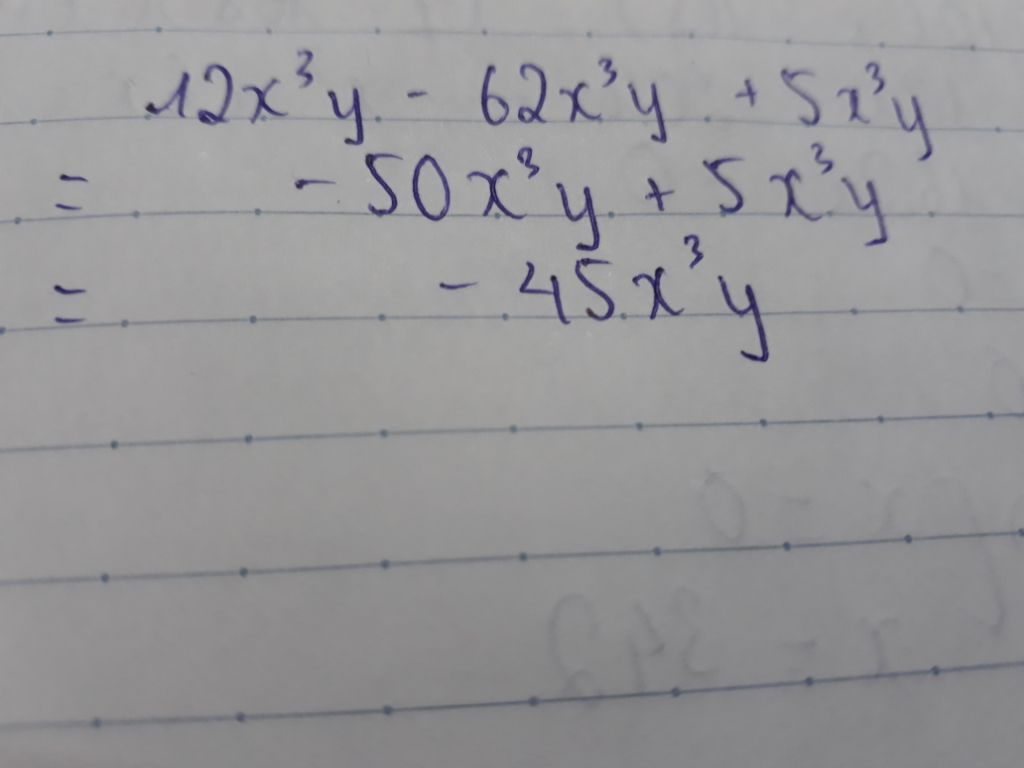 12x³y - 62x³y + 5x³y
= - 50x³y + 5x³y
= - 45x³y